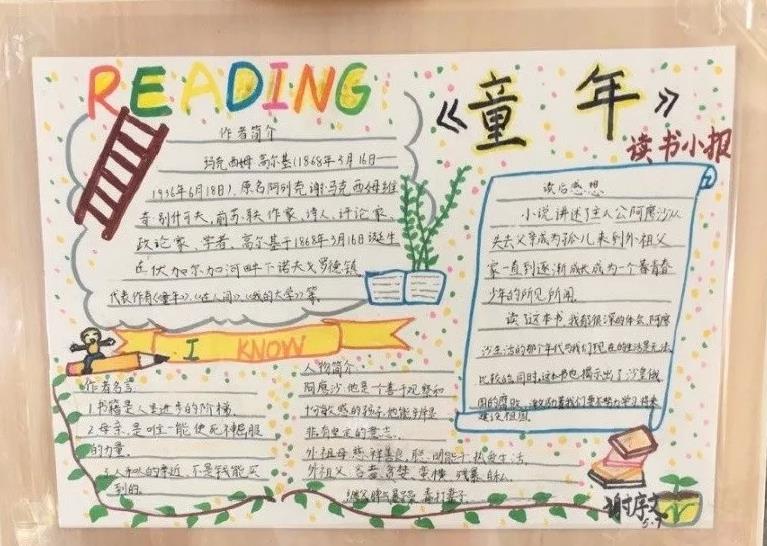 READING
《童年》
读书小报
作者简介
玛克西姆·高尔基(1868年3月16日—
1936年6月18日),原名阿列克谢·马克西姆维
奇·别什可夫,前苏联作家、诗人、评论家、
政论家、学者。高尔基于1868年3月16日诞生
在伏加尔加河畔下诺夫戈罗德镇
代表作有《童年》、《在人间》、《我的大学》等。
I KNOW
作者名言
1.书籍是人类进步的阶梯。
2.母亲,是唯一能使死神屈服
的力量。
3.人和人的亲近,不是钱能买
到的。
人物简介
阿廖沙:他是个善于观察和
十分敏感的孩子,他能够
非有坚定的意志。
外祖母:慈祥善良、聪明能干、热爱生活。
外祖父:吝啬、贪婪、专横、残暴、自私。
脾气暴躁,毒打妻子
读后感想
小说讲述了主人公阿廖沙从
失去父亲成为孤儿来到外祖父
家一直到逐渐成长成为一个春青春
少年的所见所闻。
读了这本书,我能很深的体会,阿廖
沙生活的那个年代与我们现在的生活是无法
比较的,同时,这本书也揭示出了沙皇俄
国的腐败,激励着我们要努力学习,将来
建设祖国。
谢
5.7